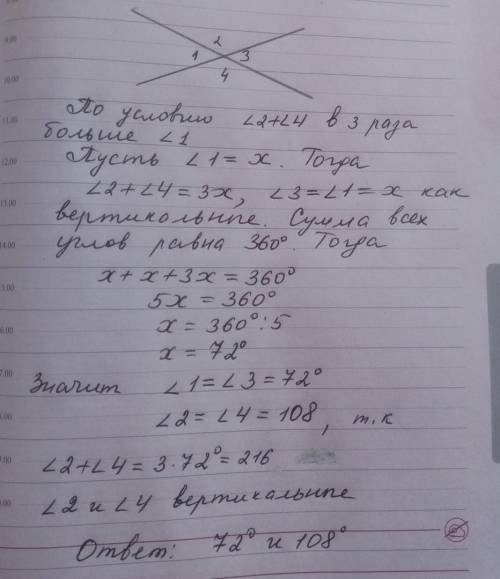 2
1 3
4
По условию ∠2+∠4 в 3 раза
больше ∠1
Пусть ∠1 = x. Тогда
∠2+∠4 = 3x, ∠3=∠1= x как
вертикольные. Сумма всех
углов равна 360°. Тогда
x + x + 3x = 360°
5x = 360°
x = 360° : 5
x = 72°
Значит ∠1=∠3 = 72°
∠2 = ∠4 = 108, т.к
∠2+∠4 = 3·72° = 216
∠2 и ∠4 вертикальные
Ответ: 72° и 108°
9.00
10.00
11.00
12.00
13.00
14.00
15.00